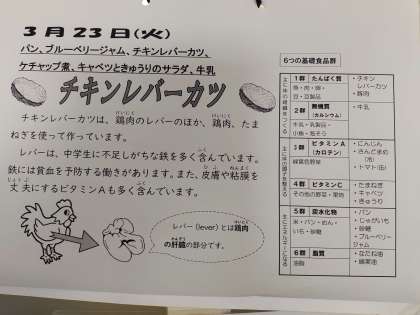 3月23日(火)
パン、ブルーベリージャム、チキンレバーカツ、
ケチャップ煮、キャベツときゅうりのサラダ、牛乳
チキンレバーカツ
チキンレバーカツは、鶏肉のレバーのほか、鶏肉、たま
ねぎを使って作っています。
レバーは、中学生に不足しがちな鉄を多く含んでいます。
鉄には貧血を予防する働きがあります。また、皮膚や粘膜を
丈夫にするビタミンAも多く含んでいます。
レバー(lever)とは鶏肉
の肝臓の部分です。
6つの基礎食品群
1群 たんぱく質
魚・肉・卵・
豆・豆製品
・チキン
レバーカツ
・豚肉
2群 無機質
(カルシウム)
牛乳・乳製品・
小魚・海そう
・牛乳
3群 ビタミンA
(カロテン)
緑黄色野菜
・にんじん
・さんどまめ
(冷)
・トマト(缶)
4群 ビタミンC
その他の野菜・果物
・たまねぎ
・キャベツ
・きゅうり
5群 炭水化物
米・パン・めん・
いも・砂糖
・パン
・じゃがいも
・砂糖
・ブルーベリー
ジャム
6群 脂質
油脂
・なたね油
・綿実油